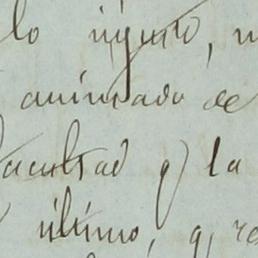 lo injusto,
animado de
facultad q la
último, q